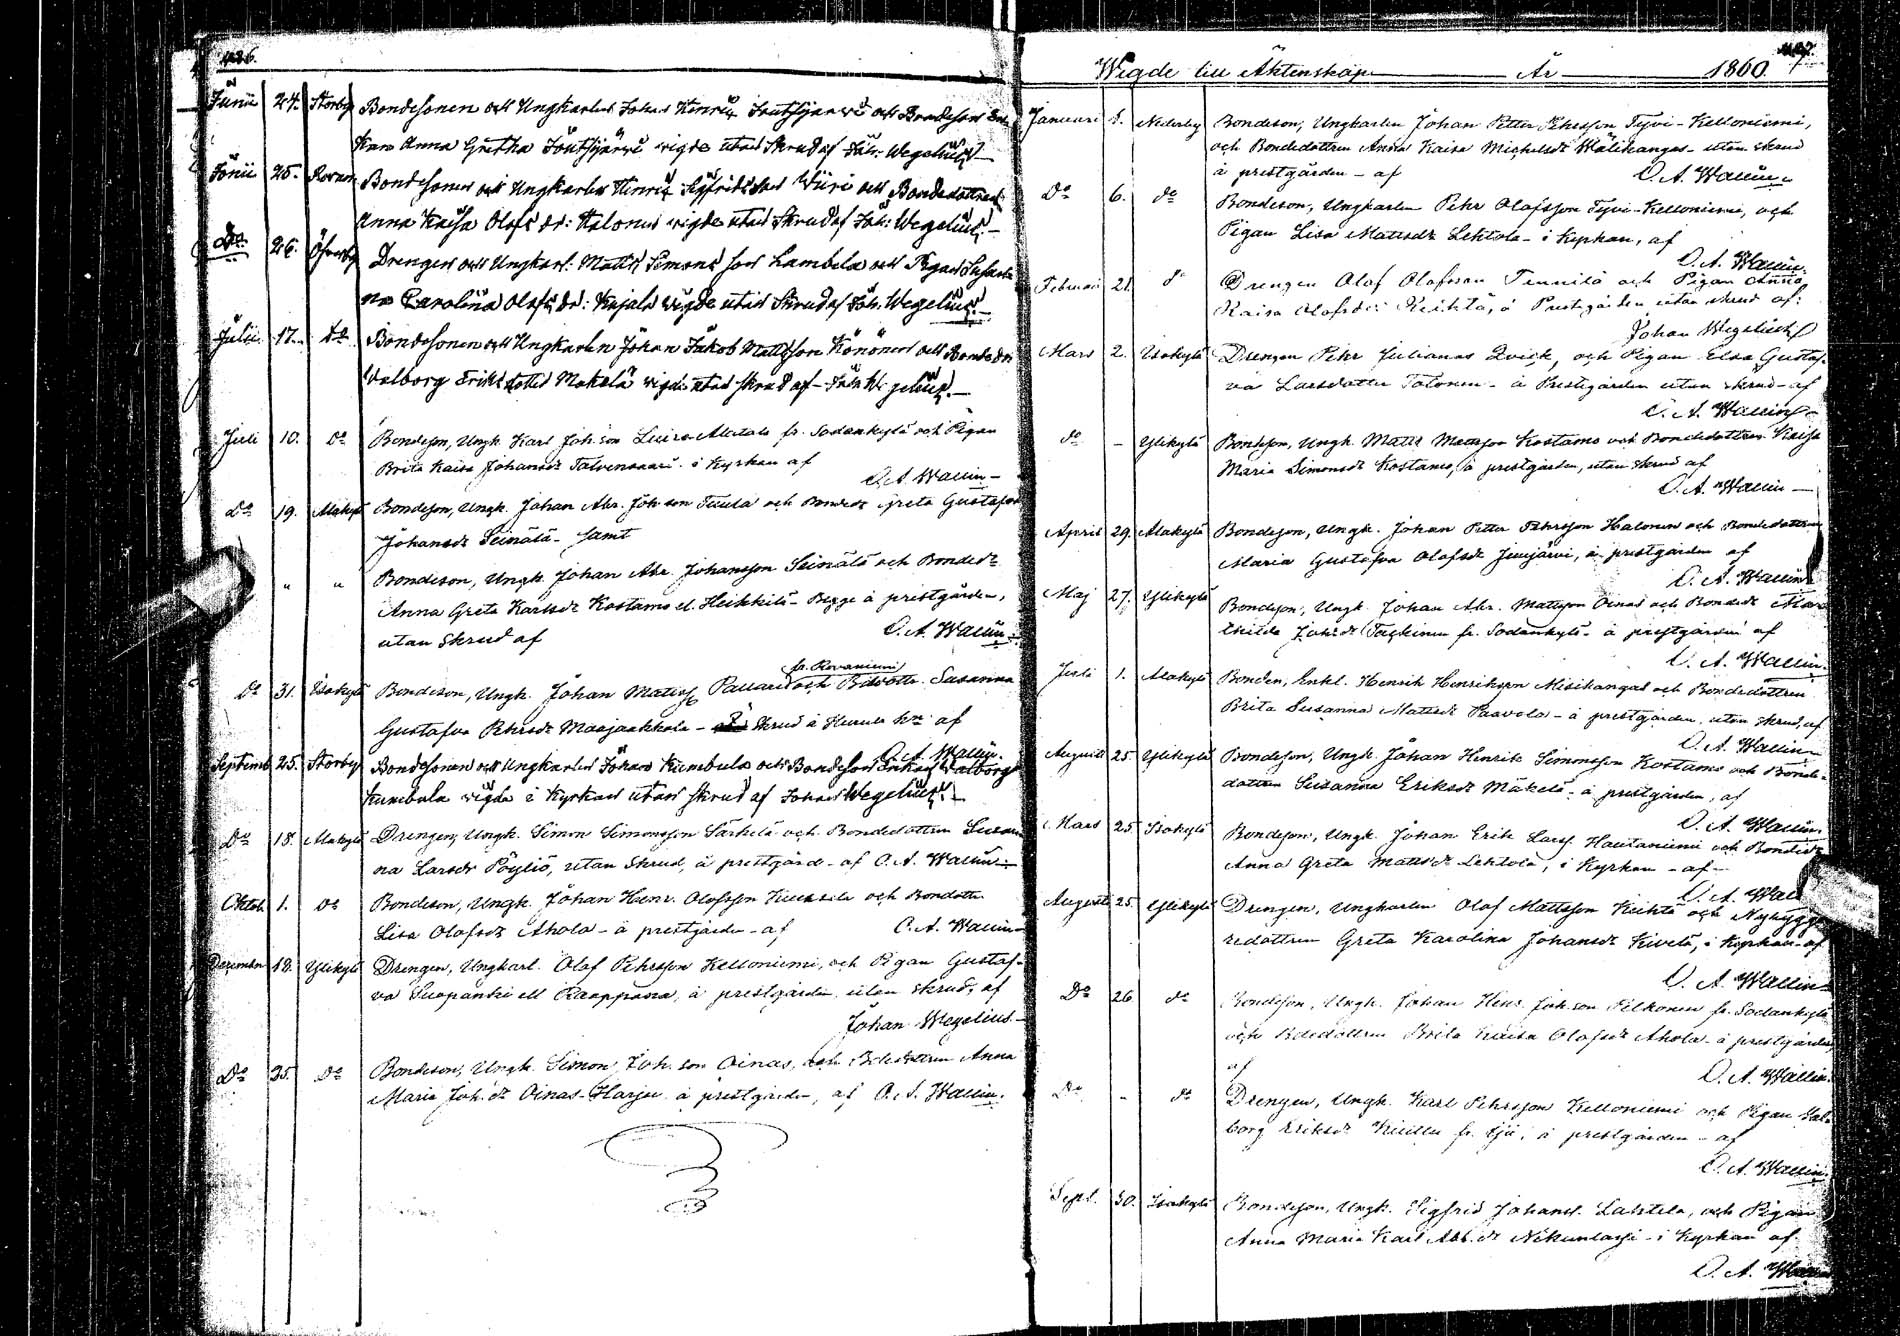 426.
Junii 24. Storby Bondesonen och Ungkarlen Johan Henric Joutsijärvi och Bondeson Enkan
Anna Gretha Joutsijärvi vigde utan Skrud af Joh: Wegelius.
Junii 25. Bondesonen och Ungkarlen Henric Sigfrids son Wiiri och Bondedottren
Anna Kajsa Olofs dr: Halonen vigde utan Skrud af Joh: Wegelius.
Do 26. Öfverby Drengen och Ungkarl: Matts Simons son Lambela och Pigan Susanna
Carolina Olofs dr: Kajala vigde utan Skrud af Joh. Wegelius.
Julii 17. do Bondesonen och Ungkarlen Johan Jakob Mattsson Könönen och Bonde dr
Valborg Eriks dotter Makelä vigde utan skrud af Joh: Wegelius.
Juli 10. Do Bondeson, Ungk. Karl Joh:son Luiro-Alatalo fr. Sodankylä och Pigan
Brita Kaisa Johansdr Talvensaari i Kyrkan af
O. A. Wallin
Do 19. Alakylä Bondeson, Ungk. Johan Abr. Joh:son Tuula och Bondedr Greta Gustafva
Johansdr Seinälä - samt
" " Bondeson, Ungk. Johan Abr. Johansson Seinälä och Bondedr
Anna Greta Karlsdr Kostamo el. Heikkilä - Begge å prestgården,
utan skrud af O. A. Wallin
fr. Rovaniemi
Do 31. Isokylä Bondeson, Ungk. Johan Matts. Pallari och Bdedottr. Susanna
Gustafva Pehrsdr Maajaakkola - Skrud å af
O. A. Wallin.
Septemb 25. Storby Bondesonen och Ungkarlen Johan Kumbula och Bondeson Enkan Valborg
Kumbula vigde i Kyrkan utan skrud af Johan Wegelius.
Do 18. Alakylä Drengen, Ungk. Simon Simonsson Särkelä och Bondedottren Susan-
na Larsdr Pöyliö, utan skrud, å prestgård. af O. A. Wallin
Oktob. 1. Do Bondeson, Ungk. Johan Henr. Olofsson Kuuksela och Bondedottr
Lisa Olofsdr Ahola - å prestgården - af O. A. Wallin
December 18. Ylikylä Drengen, Ungkarl. Olof Pehrsson Kelloniemi, och Pigan Gustaf-
va Suopanki ell Raappana, å prestgården utan skrud, af
Johan Wegelius
Do 25. Do Bondeson, Ungk. Simon Joh.son Oinas, och Bdedottren Anna
Maria Joh.dr Oinas-Harju å prestgården, af O. A. Wallin.
427.
Wigde till Äktenskap År 1860.
Januari 1. Nederby Bondeson, Ungkarlen Johan Petter Pehrsson Tyvi-Kelloniemi,
och Bondedottren Anna Kaisa Michelsdr Wälikangas - utan skrud
å prestgården - af O. A. Wallin.
Do 6. do Bondeson, Ungkarlen Pehr Olofsson Tyvi-Kelloniemi, och
Pigan Lisa Mattsdr Lehtola - i kyrkan, af
O. A. Wallin.
Februari 21. do Drengen Olof Olofsson Tennilä och Pigan Anna
Kaisa Olofsdr: Keihtä, å Prestgården utan skrud af:
Johan Wegelius
Mars 2. Isokylä Drengen Pehr Julianus Qvick, och Pigan Elsa Gustaf-
va Larsdotter Tolonen - å Prestgården utan skrud - af
O. A. Wallin
do - Ylikylä Bondeson, Ungk. Matts Mattsson Kostamo och Bondedottren Kaisa
Maria Simonsdr Kostamo, å prestgården, utan skrud af
O. A. Wallin
April 29. Alakylä Bondeson, Ungk. Johan Petter Pehrsson Halonen och Bondedottren
Maria Gustafva Olofsdr Jumjärvi, å prestgården af
O. A. Wallin
Maj 27. Ylikylä Bondeson, Ungk. Johan Abr. Mattsson Oinas och Bondedr
Johsdr fr. Sodankylä - å prestgården af
O. A. Wallin.
Juli 1. Alakylä Bonden, Enkl. Henrik Henriksson Misikangas och Bondedottren
Brita Susanna Mattsdr Paavola - å prestgården, utan skrud, af
O. A. Wallin
Augusti 25. Ylikylä Bondeson, Ungk. Johan Henrik Simonsson Kostamo och Bonde-
dottren Susanna Eriksdr Mäkelä - å prestgården, af
O. A. Wallin.
Mars 25. Isokylä Bondeson, Ungk. Johan Erik Lars. Hautaniemi och Bondedr
Anna Greta Mattsdr Lehtola, i Kyrkan - af -
O. A. Wall
Augusti 25. Ylikylä Drengen, Ungkarlen Olof Mattsson Keihtä och Nybygga-
redottren Greta Karolina Johansdr Kivelä, i Kyrkan - af
O. A. Wallin
Do 26. do Bondeson, Ungk. Johan Henr. Joh:son Pelkonen fr. Sodankylä
och Bdedottren Brita Kaisa Olofsdr Ahola - å prestgården,
af O. A. Wallin.
Do - do Drengen, Ungk. Karl Pehrsson Kelloniemi och Pigan Val-
borg Eriksdr fr. Ijo, å prestgården - af
O. A. Wallin.
Sept. 30. Isokylä Bondeson, Ungk. Sigfrid Johans. Lahtela, och Pigan
Anna Maria Karl Abr.dr Nikunlassi - i Kyrkan af
O. A. Wallin